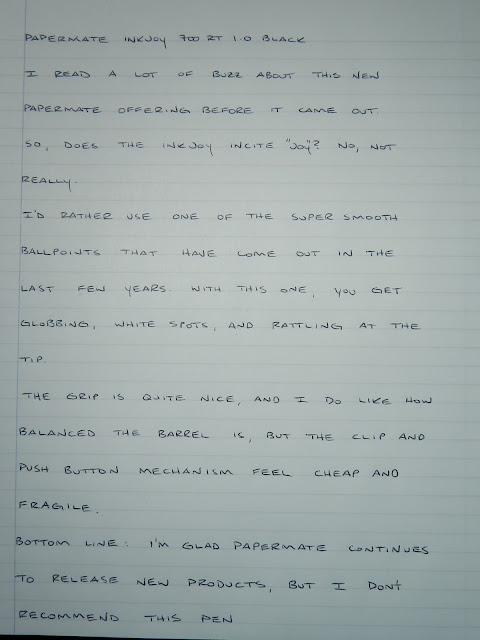 PAPERMATE INKJOY 700 RT 1.0 BLACK
I READ A LOT OF BUZZ ABOUT THIS NEW
PAPERMATE OFFERING BEFORE IT CAME OUT.
SO, DOES THE INKJOY INCITE "JOY"? NO, NOT
REALLY.
I'D RATHER USE ONE OF THE SUPER SMOOTH
BALLPOINTS THAT HAVE COME OUT IN THE
LAST FEW YEARS. WITH THIS ONE, YOU GET
GLOBBING, WHITE SPOTS, AND RATTLING AT THE
TIP.
THE GRIP IS QUITE NICE, AND I DO LIKE HOW
BALANCED THE BARREL IS, BUT THE CLIP AND
PUSH BUTTON MECHANISM FEEL CHEAP AND
FRAGILE.
BOTTOM LINE: I'M GLAD PAPERMATE CONTINUES
TO RELEASE NEW PRODUCTS, BUT I DON'T
RECOMMEND THIS PEN